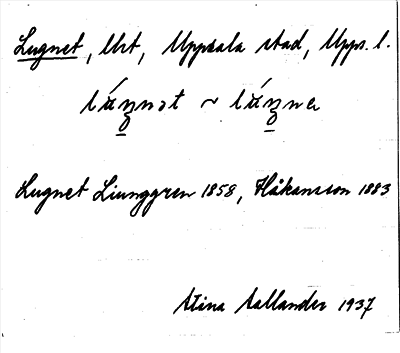 Lugnet, Uht, Uppsala stad, Upps. l.
Lugnet Ljunggren 1858, Håkansson 1883
Stina Sallander 1937